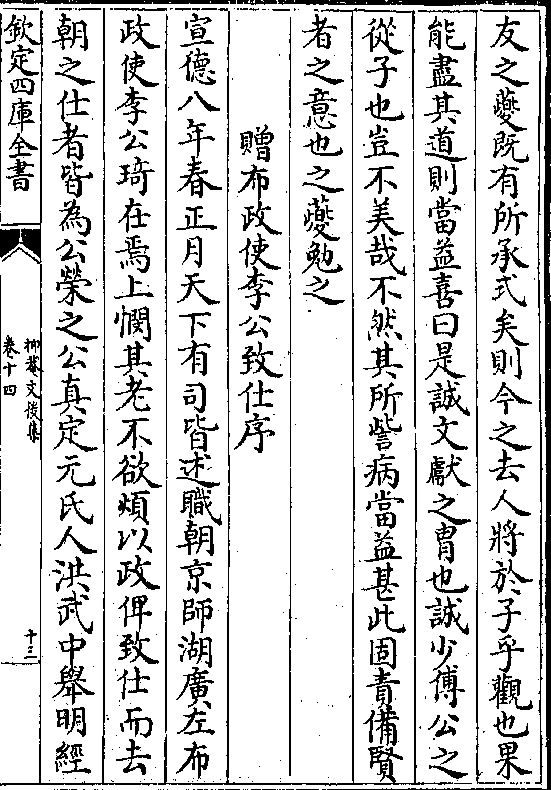 友之夔既有所承式矣則今之去人將於子乎觀也果
能盡其道則當益喜曰是誠文獻之胄也誠少傅公之
從子也豈不美哉不然其所訾病當益甚此固責備賢
者之意也之夔勉之
贈布政使李公致仕序
宣德八年春正月天下有司皆述職朝京師湖廣左布
政使李公琦在焉上憫其老不欲煩以政俾致仕而去
朝之仕者皆為公榮之公真定元氏人洪武中舉明經
欽定四庫全書
抑菴文後集
卷十四
十三